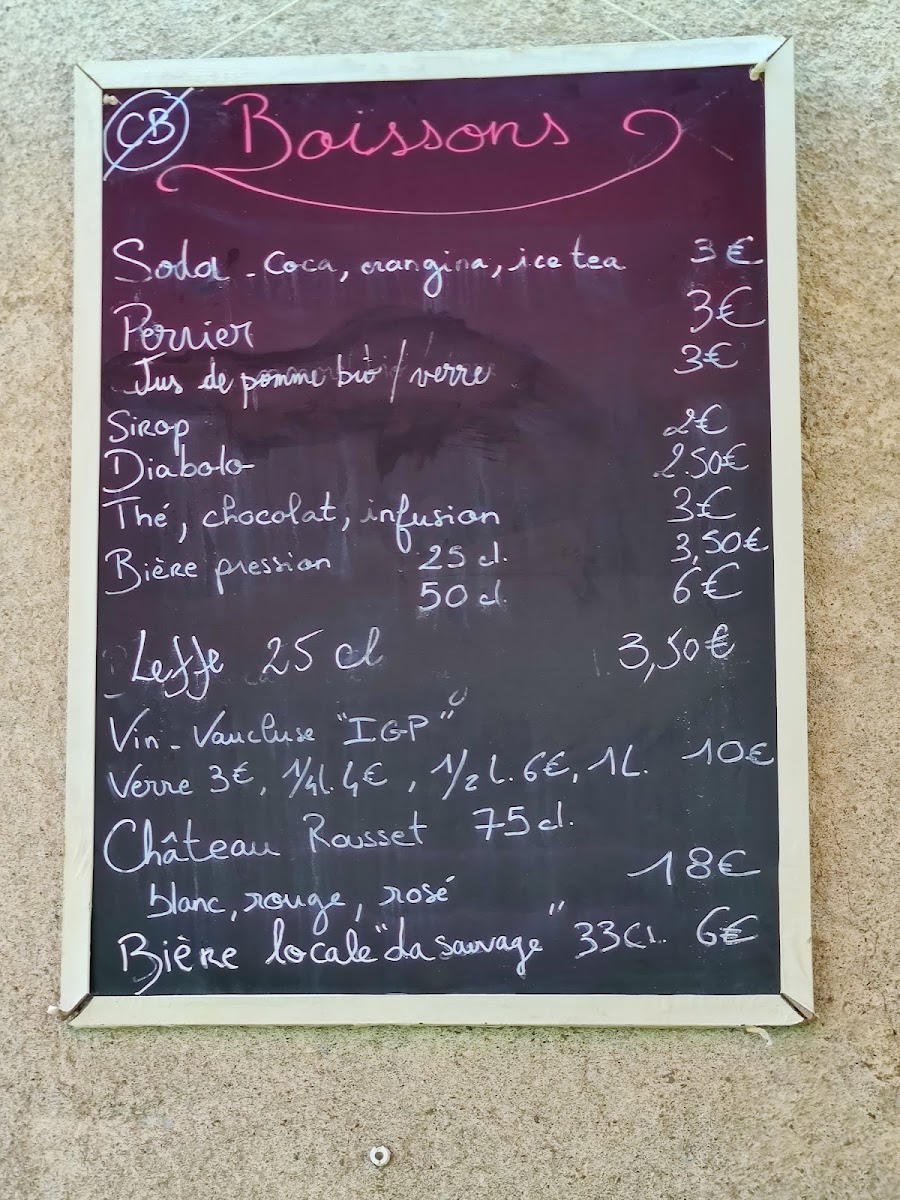 CB Boissons
Soda - Coca, orangina, ice tea 3€
Perrier 3€
Jus de pomme bio / verre 3€
Sirop 2€
Diabolo 2.50€
Thé, chocolat, infusion 3€
Bière pression 25 cl. 3,50€
50 cl 6€
Leffe 25 cl 3,50€
Vin - Vaucluse "IGP"
Verre 3€, 1/4l. 4€, 1/2 l. 6€, 1L. 10€
Château Rousset 75 cl.
blanc, rouge, rosé 18€
Bière locale "la sauvage" 33Cl. 6€